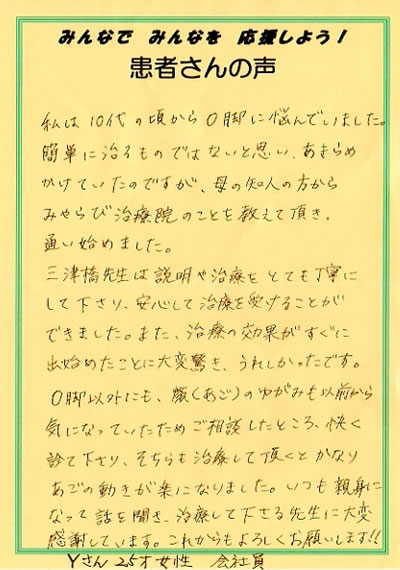 みんなで みんなを 応援しよう!
患者さんの声
私は10代の頃からO脚に悩んでいました。
簡単に治るものではないと思い、あきらめ
かけていたのですが、母の知人の方から
みやらび治療院のことを教えて頂き、
通い始めました。
三津橋先生は説明や治療をとても丁寧に
して下さり、安心して治療を受けることが
できました。また、治療の効果がすぐに
出始めたことに大変驚き、うれしかったです。
O脚以外にも、顔(あご)のゆがみも以前から
気になっていたためご相談したところ、快く
診て下さり、そちらも治療して頂くとかなり
あごの動きが楽になりました。いつも親身に
なって話を聞き、治療して下さる先生に大変
感謝しています。これからもよろしくお願いします!!
Yさん 25才女性 会社員